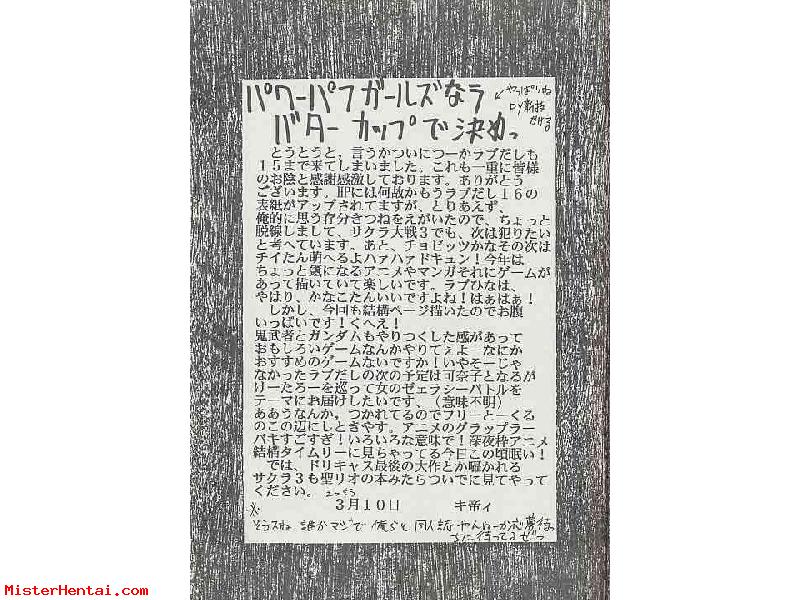 パワーパフガールズなら
バターカップで決めっ
やっぱりね
とうとうと、言うかついにつーかラブだしも
１５まで来てしまいました。これも一重に皆様
のお陰と感謝感激しております。ありがとう
ございます。HPには何故かもうラブだし１６の
表紙がアップされてますが、とりあえず、
俺的に思う存分きつねをえがいたので、ちょっと
脱線しまして、サクラ大戦３でも、次は犯りたい
と考へています。あと、チョビッツかなその次は
チイたん萌へるよハァハァドキュン！今年は
ちょっと気になるアニメやマンガそれにゲームが
あって描いていて楽しいです。ラブひなは、
やはり、かなこたんいいですよね！はぁはぁ！
しかし、今回も結構ページ描いたのでお腹
いっぱいです！くへえ！
鬼武者とガンダムもやりつくした感があって
おもしろいゲームなんかやりてぇよ　なにか
おすすめのゲームないですか！いやそーじゃ
なかったラブだしの次の予定は可奈子となるが
けーたろーを巡って女のゼェラシーバトルを
テーマにお届けしたいです、（意味不明）
ああうなんか。つかれてるのでフリーとーくる
のこの辺にしときやす。アニメのグラップラー
バキすごすぎ！いろいろな意味で！深夜枠アニメ
結構タイムリーに見ちゃってる今日この頃眠い！
では、ドリキャス最後の大作とか囁かれる
サクラ３も聖リオの本みたらついでに見てやって
ください。
３月１０日　キ帝ィ
そうスね 誰かマジで俺らと同人誌やんねーか
待ってるぜっ
MisterHentai.com